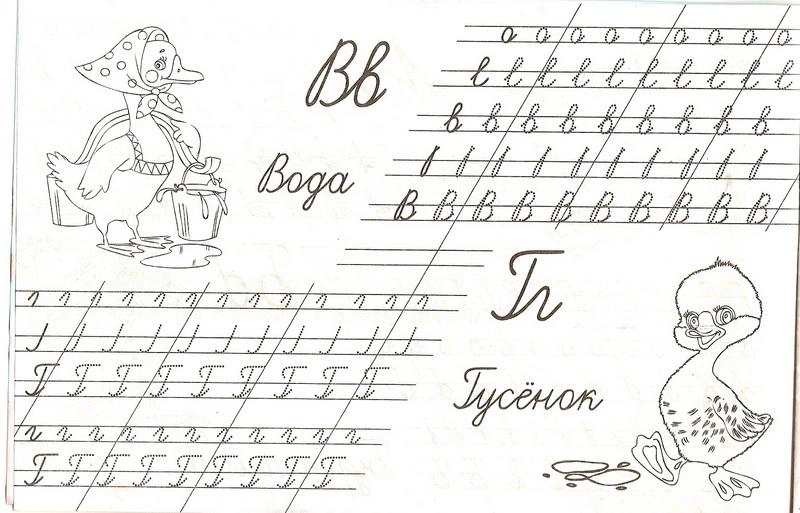 Вв
Вода
Гг
Гусёнок